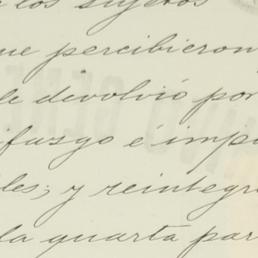 los sujetos
que percibieron
le devolvió por
é imp
les; y reintegr
la quarta par